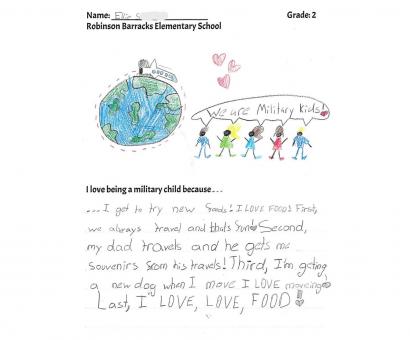 Name: Ellie S Grade: 2
Robinson Barracks Elementary School
We are Military Kids!
I love being a military child because...
...I get to try new foods! I LOVE FOOD! First,
we always travel and thats fun! Second,
my dad travels and he gets me
souvenirs from his travels! Third, I'm geting
a new dog when I move I LOVE
Last, I LOVE, LOVE, FOOD!